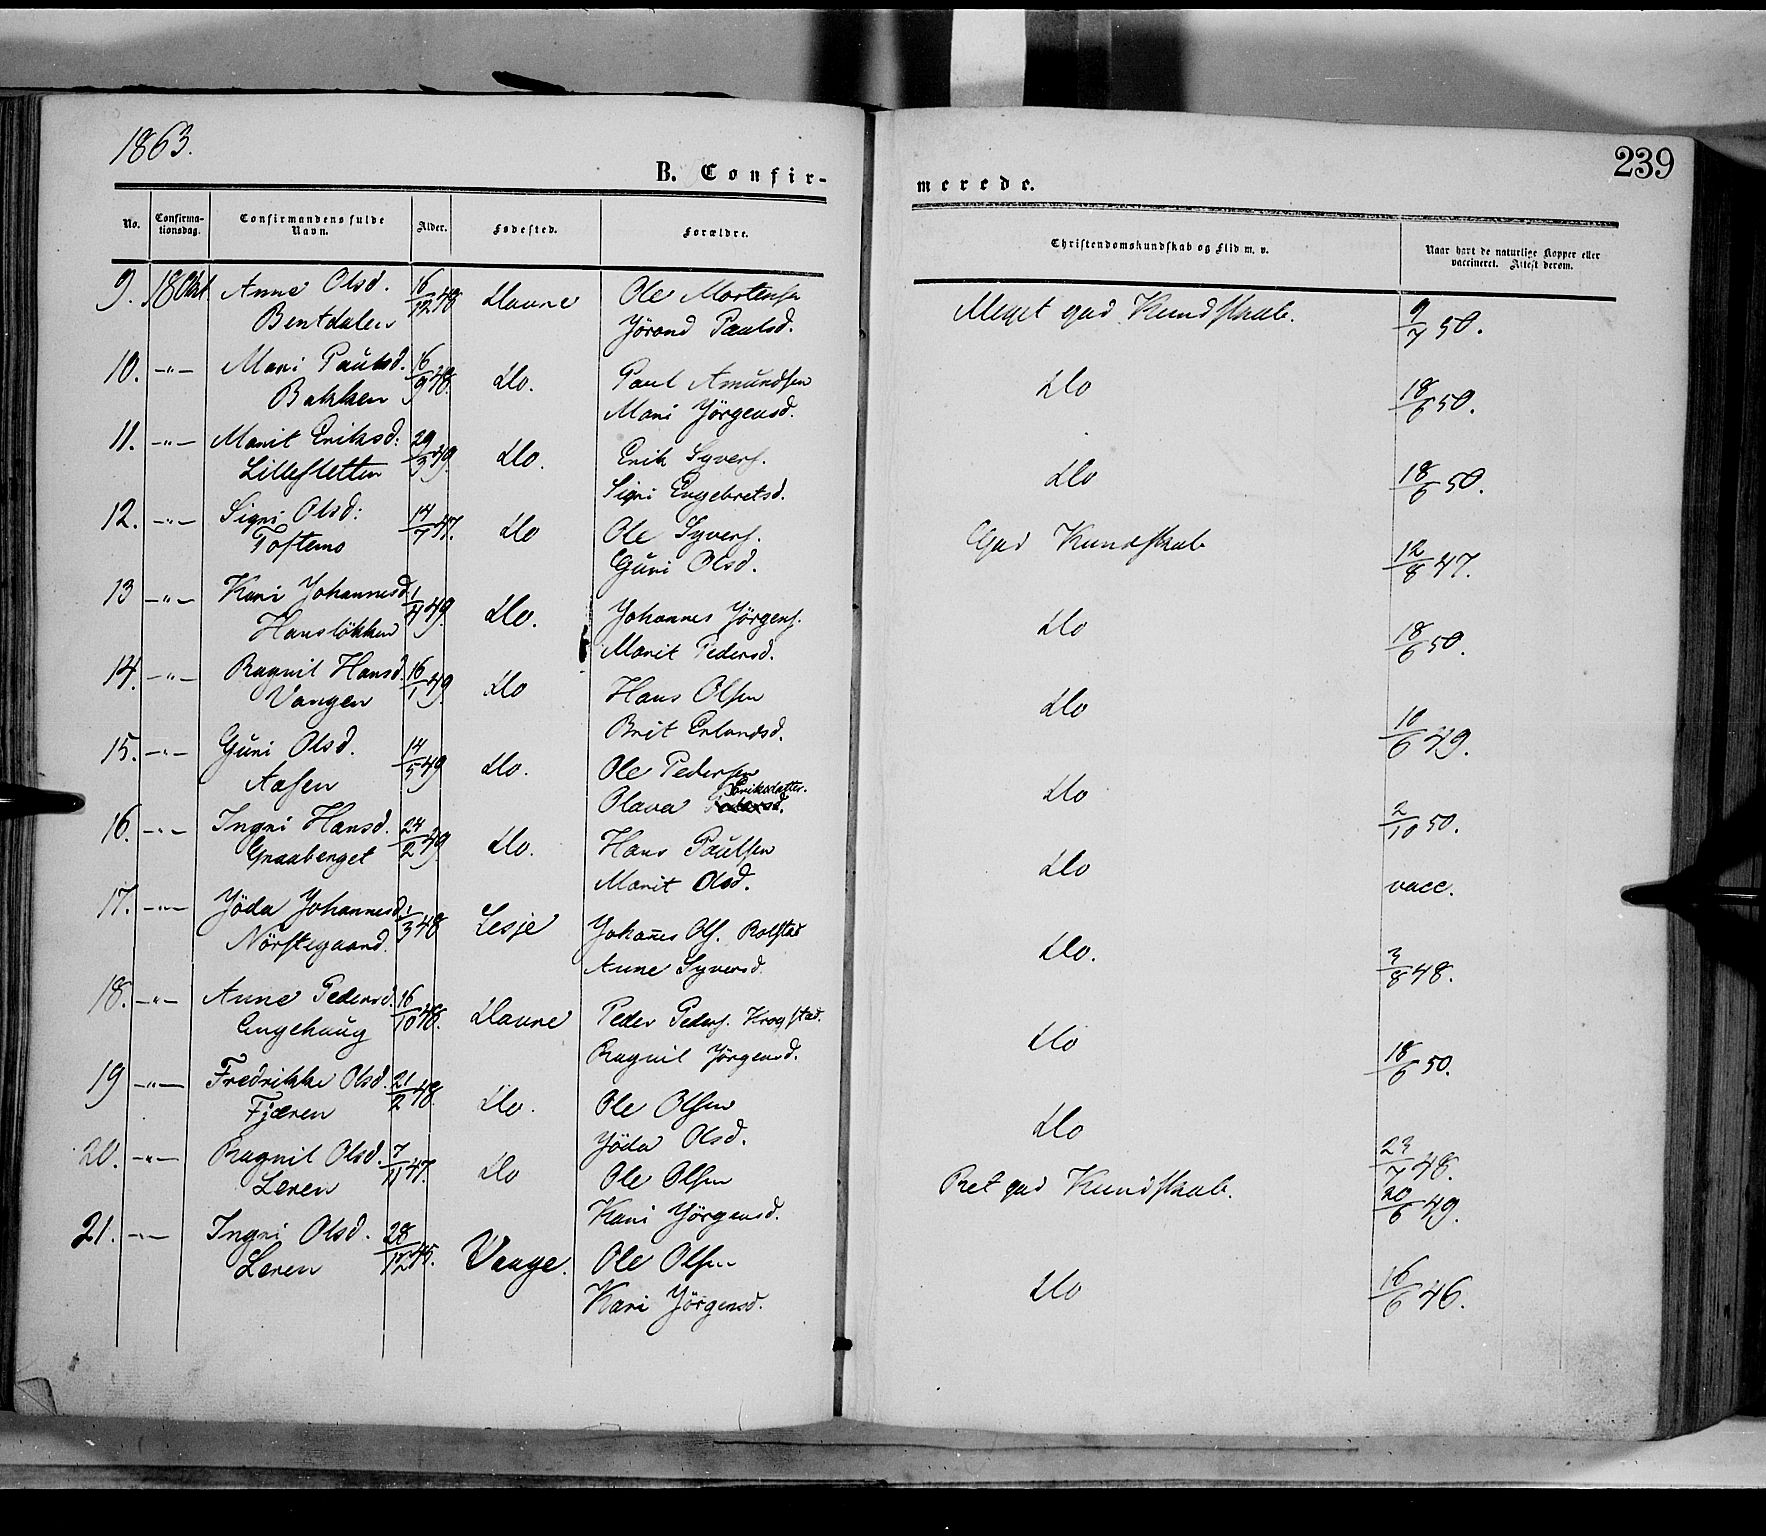 1863.
239
B. Confir-
merede.
No.
Confirma-
tionsdag.
Confirmandens fulde
Navn.
Alder.
Fødested.
Forældre.
Christendomskundskab og Flid m. v.
Naar havt de naturlige Kopper eller
vaccineret. Attest derom.
9. 18 Okt. Anne Olsd. 16/12 48 Dovre Ole Mortensen Meget god Kundskab. 9/7 50.
Bentdalen Jörond Paulsd.
10. -"- Mari Paulsd. 16/9 48. Do. Paul Amundsen Do 18/6 50.
Bakken Mari Jörgensd.
11. -"- Marit Eriksd: 29/3 49. Do. Erik Syvers. Do 18/6 50.
Lillesletten Signi Engebretsd.
12. -"- Signi Olsd: 14/7 47. Do Ole Syvers. God Kundskab 12/8 47.
Toftemo Guri Olsd.
13 -"- Kari Johannesd. 1/4 49. Do. Johannes Jörgens. Do 18/6 50.
Hanslökken Marit Pedersd.
14. -"- Ragnil Hansd. 16/1 49. Do Hans Olsen Do 10/6 49.
Vangen Brit Erlandsd.
15. -"- Guri Olsd. 14/5 49 Do. Ole Pedersen Do 2/10 50.
Aasen Olava Eriksdatter.
16. -"- Ingri Hansd. 24/2 49 Do. Hans Paulsen Do vacc.
Graaberget Marit Olsd.
17. -"- Jöda Johannesd. 1/3 48 Lesje Johañes Ols. Rolstad Do. 3/8 48.
Nörstegaard. Anne Syversd.
18. -"- Anne Pedersd. 16/10 48. Dovre Peder Peders. Krogstad. Do 18/6 50.
Engehaug Ragnil Jörgensd.
19 -"- Fredrikke Olsd. 21/2 48. Do. Ole Olsen Do 23/7 48.
Fjæren Jöda Olsd.
20. -"- Ragnil Olsd. 7/11 47. Do Ole Olsen Ret god Kundskab. 20/6 49.
Leren Kari Jörgensd.
21. -"- Ingri Olsd. 28/12 45. Vaage. Ole Olsen Do 16/6 46.
Leren Kari Jörgensd.